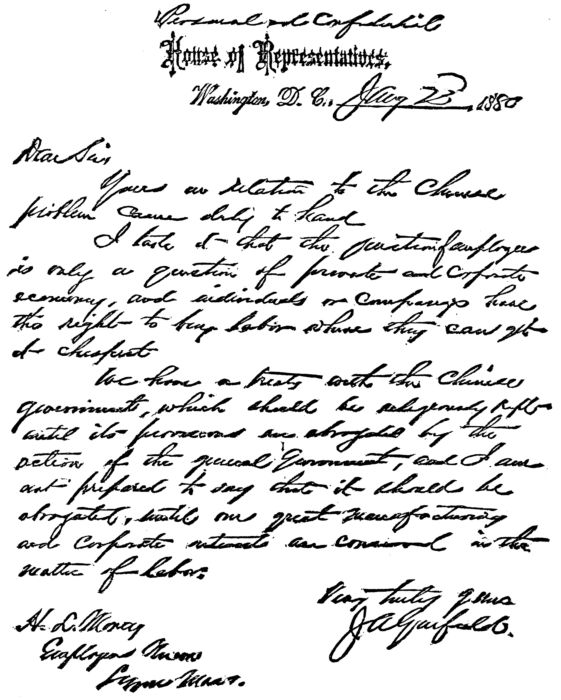 Personal and Confidential
House of Representatives,
Washington, D. C., Jany 23, 1880
Dear Sir,
Yours in relation to the Chinese
problem came duly to hand
I take it that the question of employees
is only a question of private and corporate
economy, and individuals or companys have
the right to buy labor where they can get
it cheapest
We have a treaty with the Chinese
government, which should be religiously kept
until its provisions are abrogated by the
action of the general Government, and I am
not prepared to say that it should be
abrogated, until our great manufacturing
and corporate interests are conserved in the
matter of labor.
Very truly yours
J A Garfield.
H. L. Morey
Employers Union
Lynn Mass.